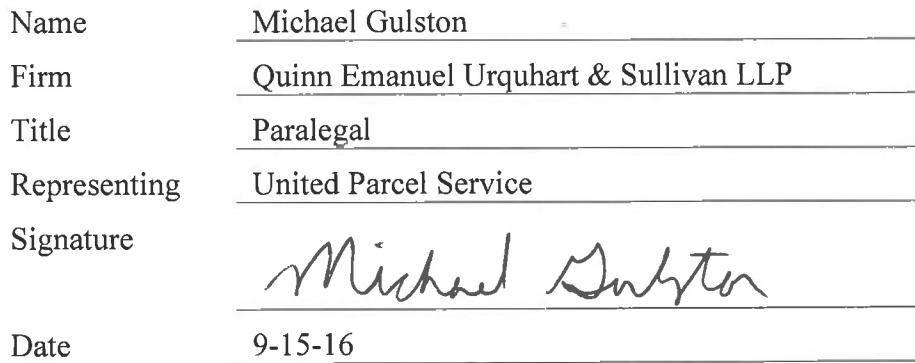 Name Michael Gulston
Firm Quinn Emanuel Urquhart & Sullivan LLP
Title Paralegal
Representing United Parcel Service
Signature Michael Gulston
Date 9-15-16